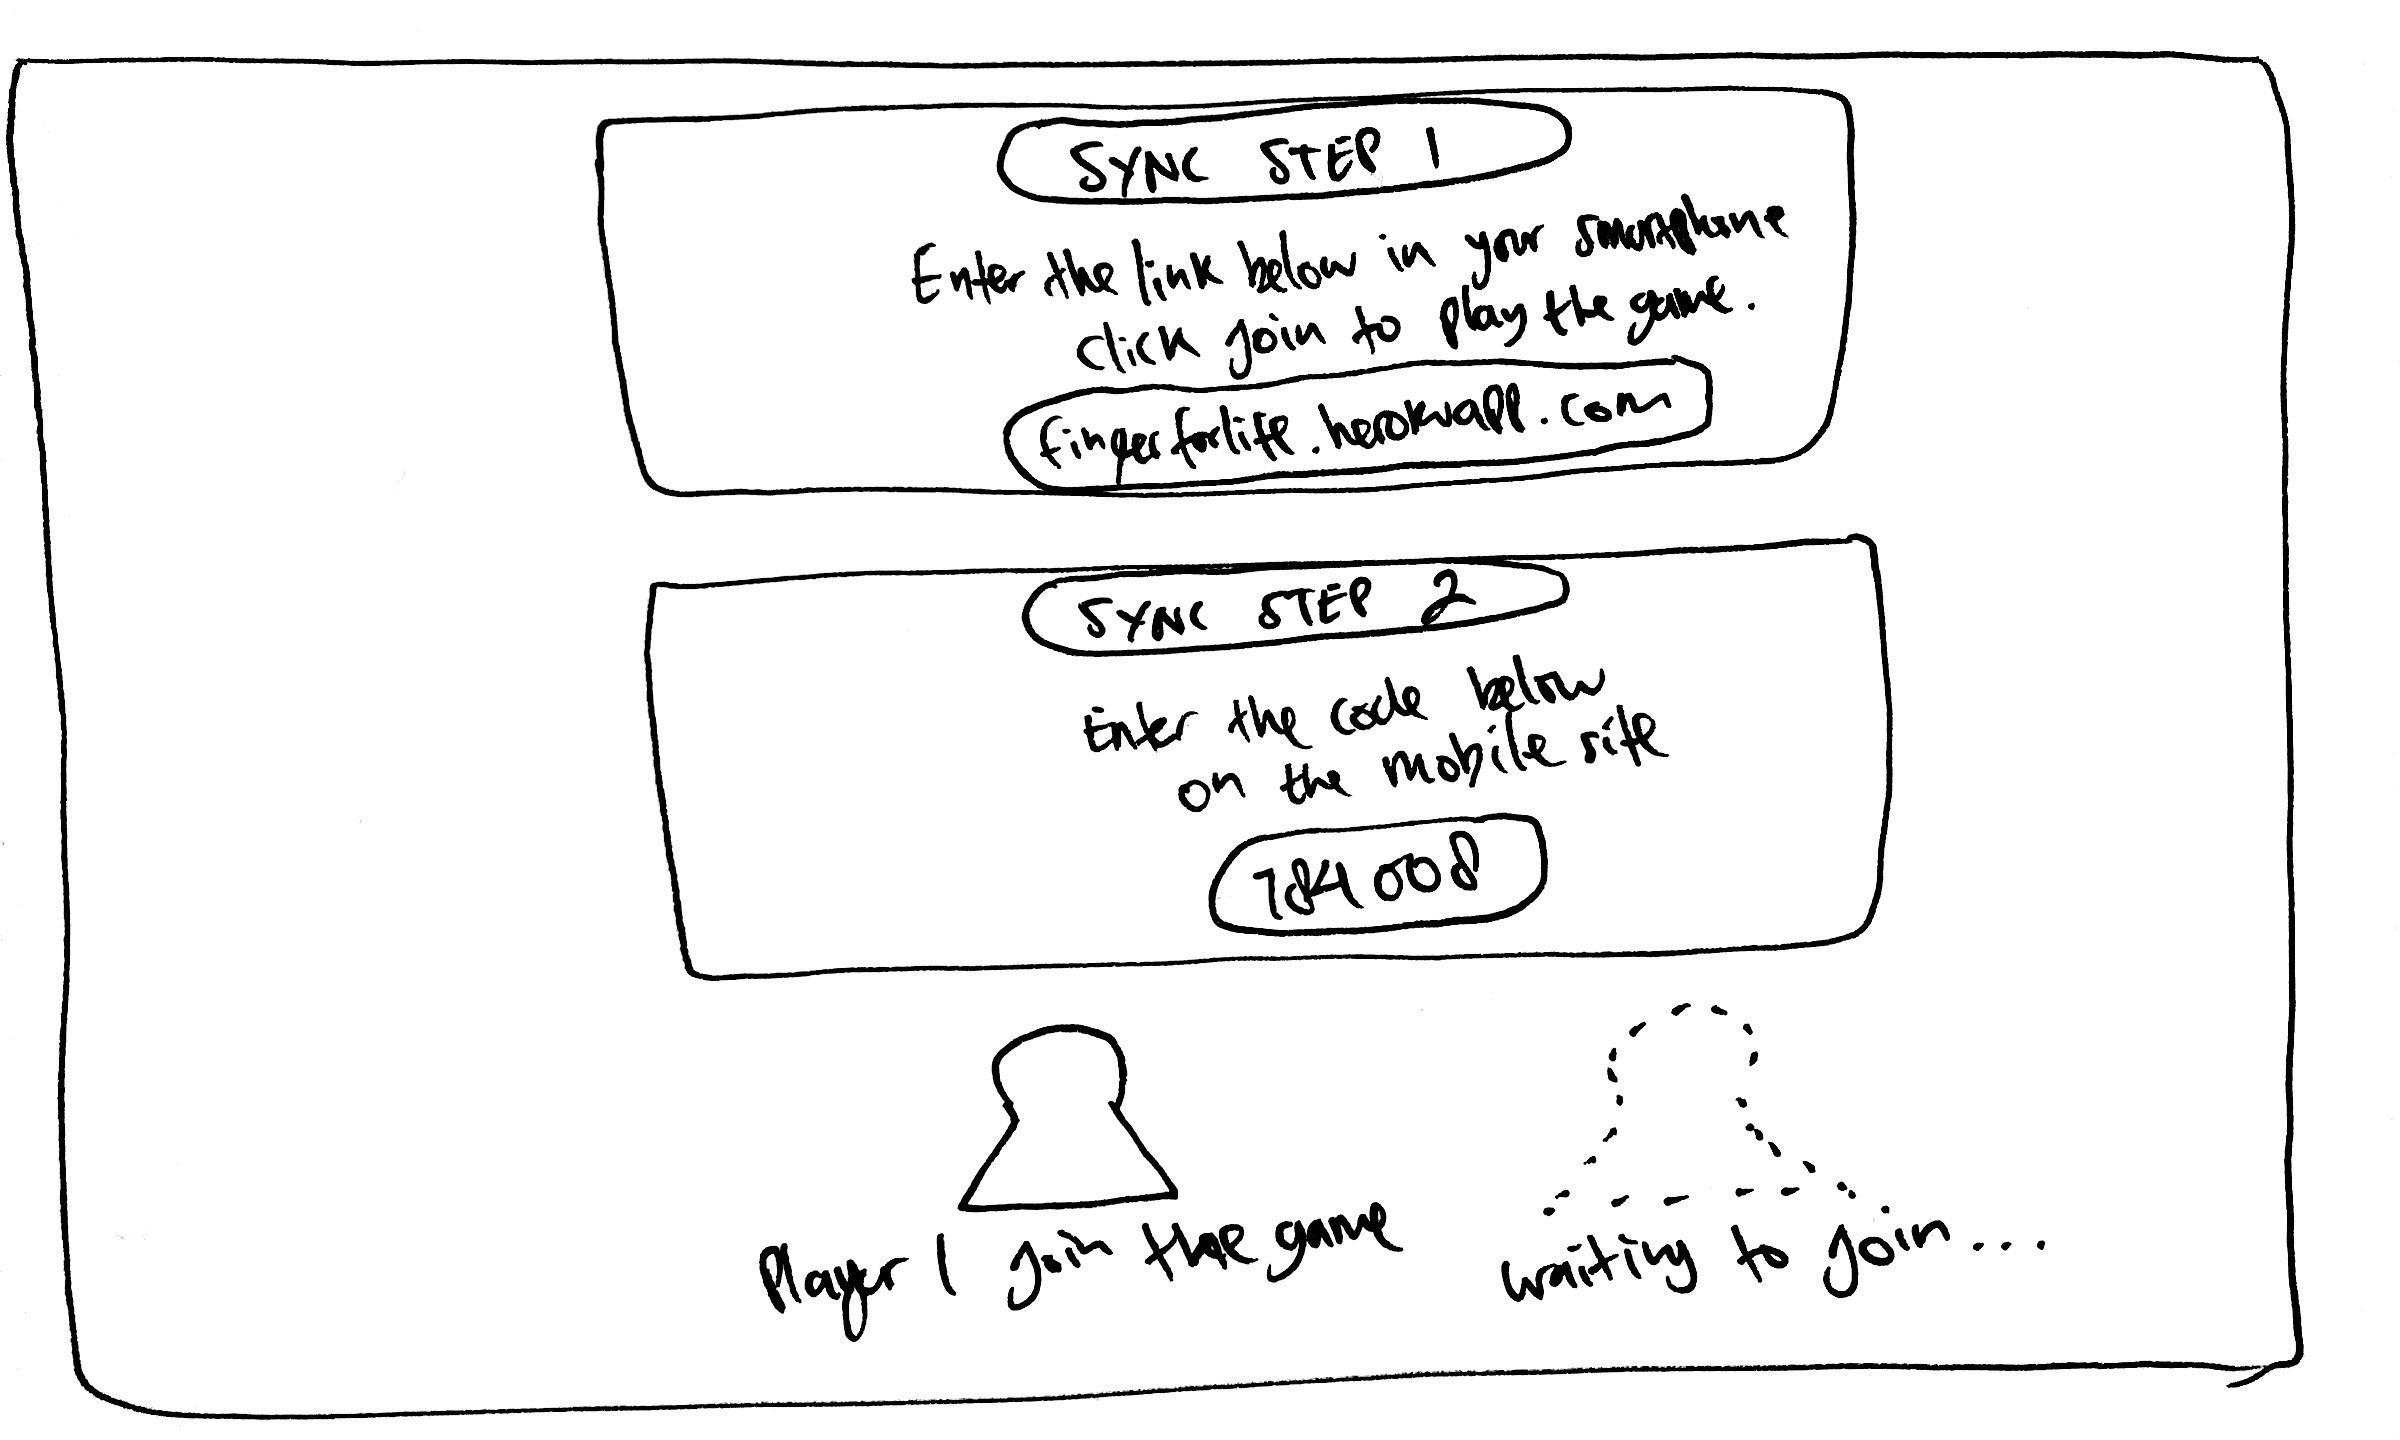 SYNC STEP 1
Enter the link below in your smartphone
click join to play the game.
fingerforlife.herokuapp.com
SYNC STEP 2
Enter the code below
on the mobile site
784008
Player 1 join the game
waiting to join...